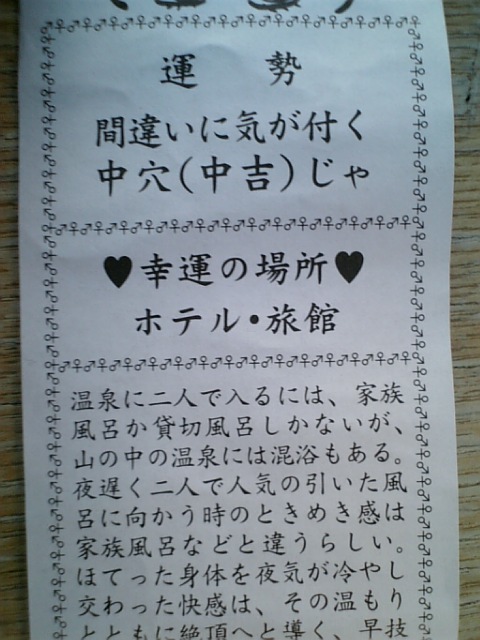 運 勢
間違いに気が付く
中穴(中吉)じゃ
♥幸運の場所♥
ホテル・旅館
温泉に二人で入るには、家族
風呂か貸切風呂しかないが、
山の中の温泉には混浴もある。
夜遅く二人で人気の引いた風
呂に向かう時のときめき感は
家族風呂などと違うらしい。
ほてった身体を夜気が冷やし
交わった快感は、その温もり
とともに絶頂へと導く、早技